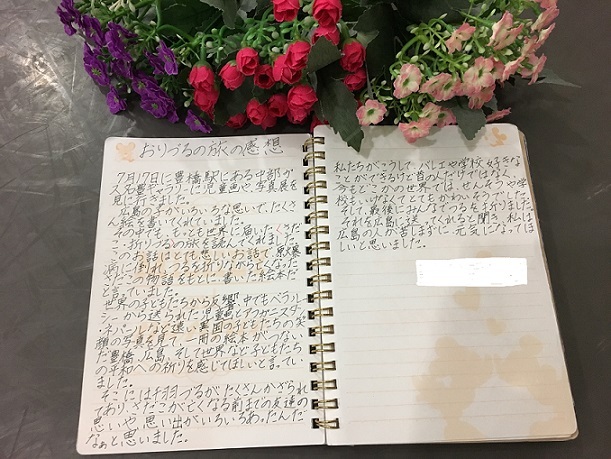 おりづるの旅の感想
7月17日に豊橋駅にある中部ガ
ス兄豊ギャラリーに児童画や、写真展を
見に行きました。
広島の子がいろいろな思いで、たくさ
ん絵を書いてくれていました。
その中でも、もっとも世界に届いたくさだ
こ、折りづるの旅を読んでくれました。
このお話はとても悲しいお話で、原爆
病に倒れ、つるを折りながら亡くなった
この物語をもとに、書いた絵本だ
と言っていました。
世界の子どもたちから反響、中でもベラル
シーから送られた児童画とアフガニスタン、
ネパールなど遠い異国の子どもたちの笑
顔の写真を見て、一冊の絵本がつない
だ豊橋、広島、そして世界など子どもたち
の平和への祈りを感じてほしいと言ってい
ました。
そこには千羽づるが、たくさんかざられ
てあり、さだこが亡くなる前までの友達の
思いや、思い出がいろいろあったんだ
なぁと思いました。
私たちがこうして、バレエや学校、好きな
ことができるけど昔の人だけではなく、
今もどこかの世界では、せんそうや学
校もいけなくてとてもかわいそうでした。
そして、最後にみんなでつるを折りました。
それを広島に送ってくれると聞き、私は
広島の人が苦しまずに元気になってほ
しいと思いました。